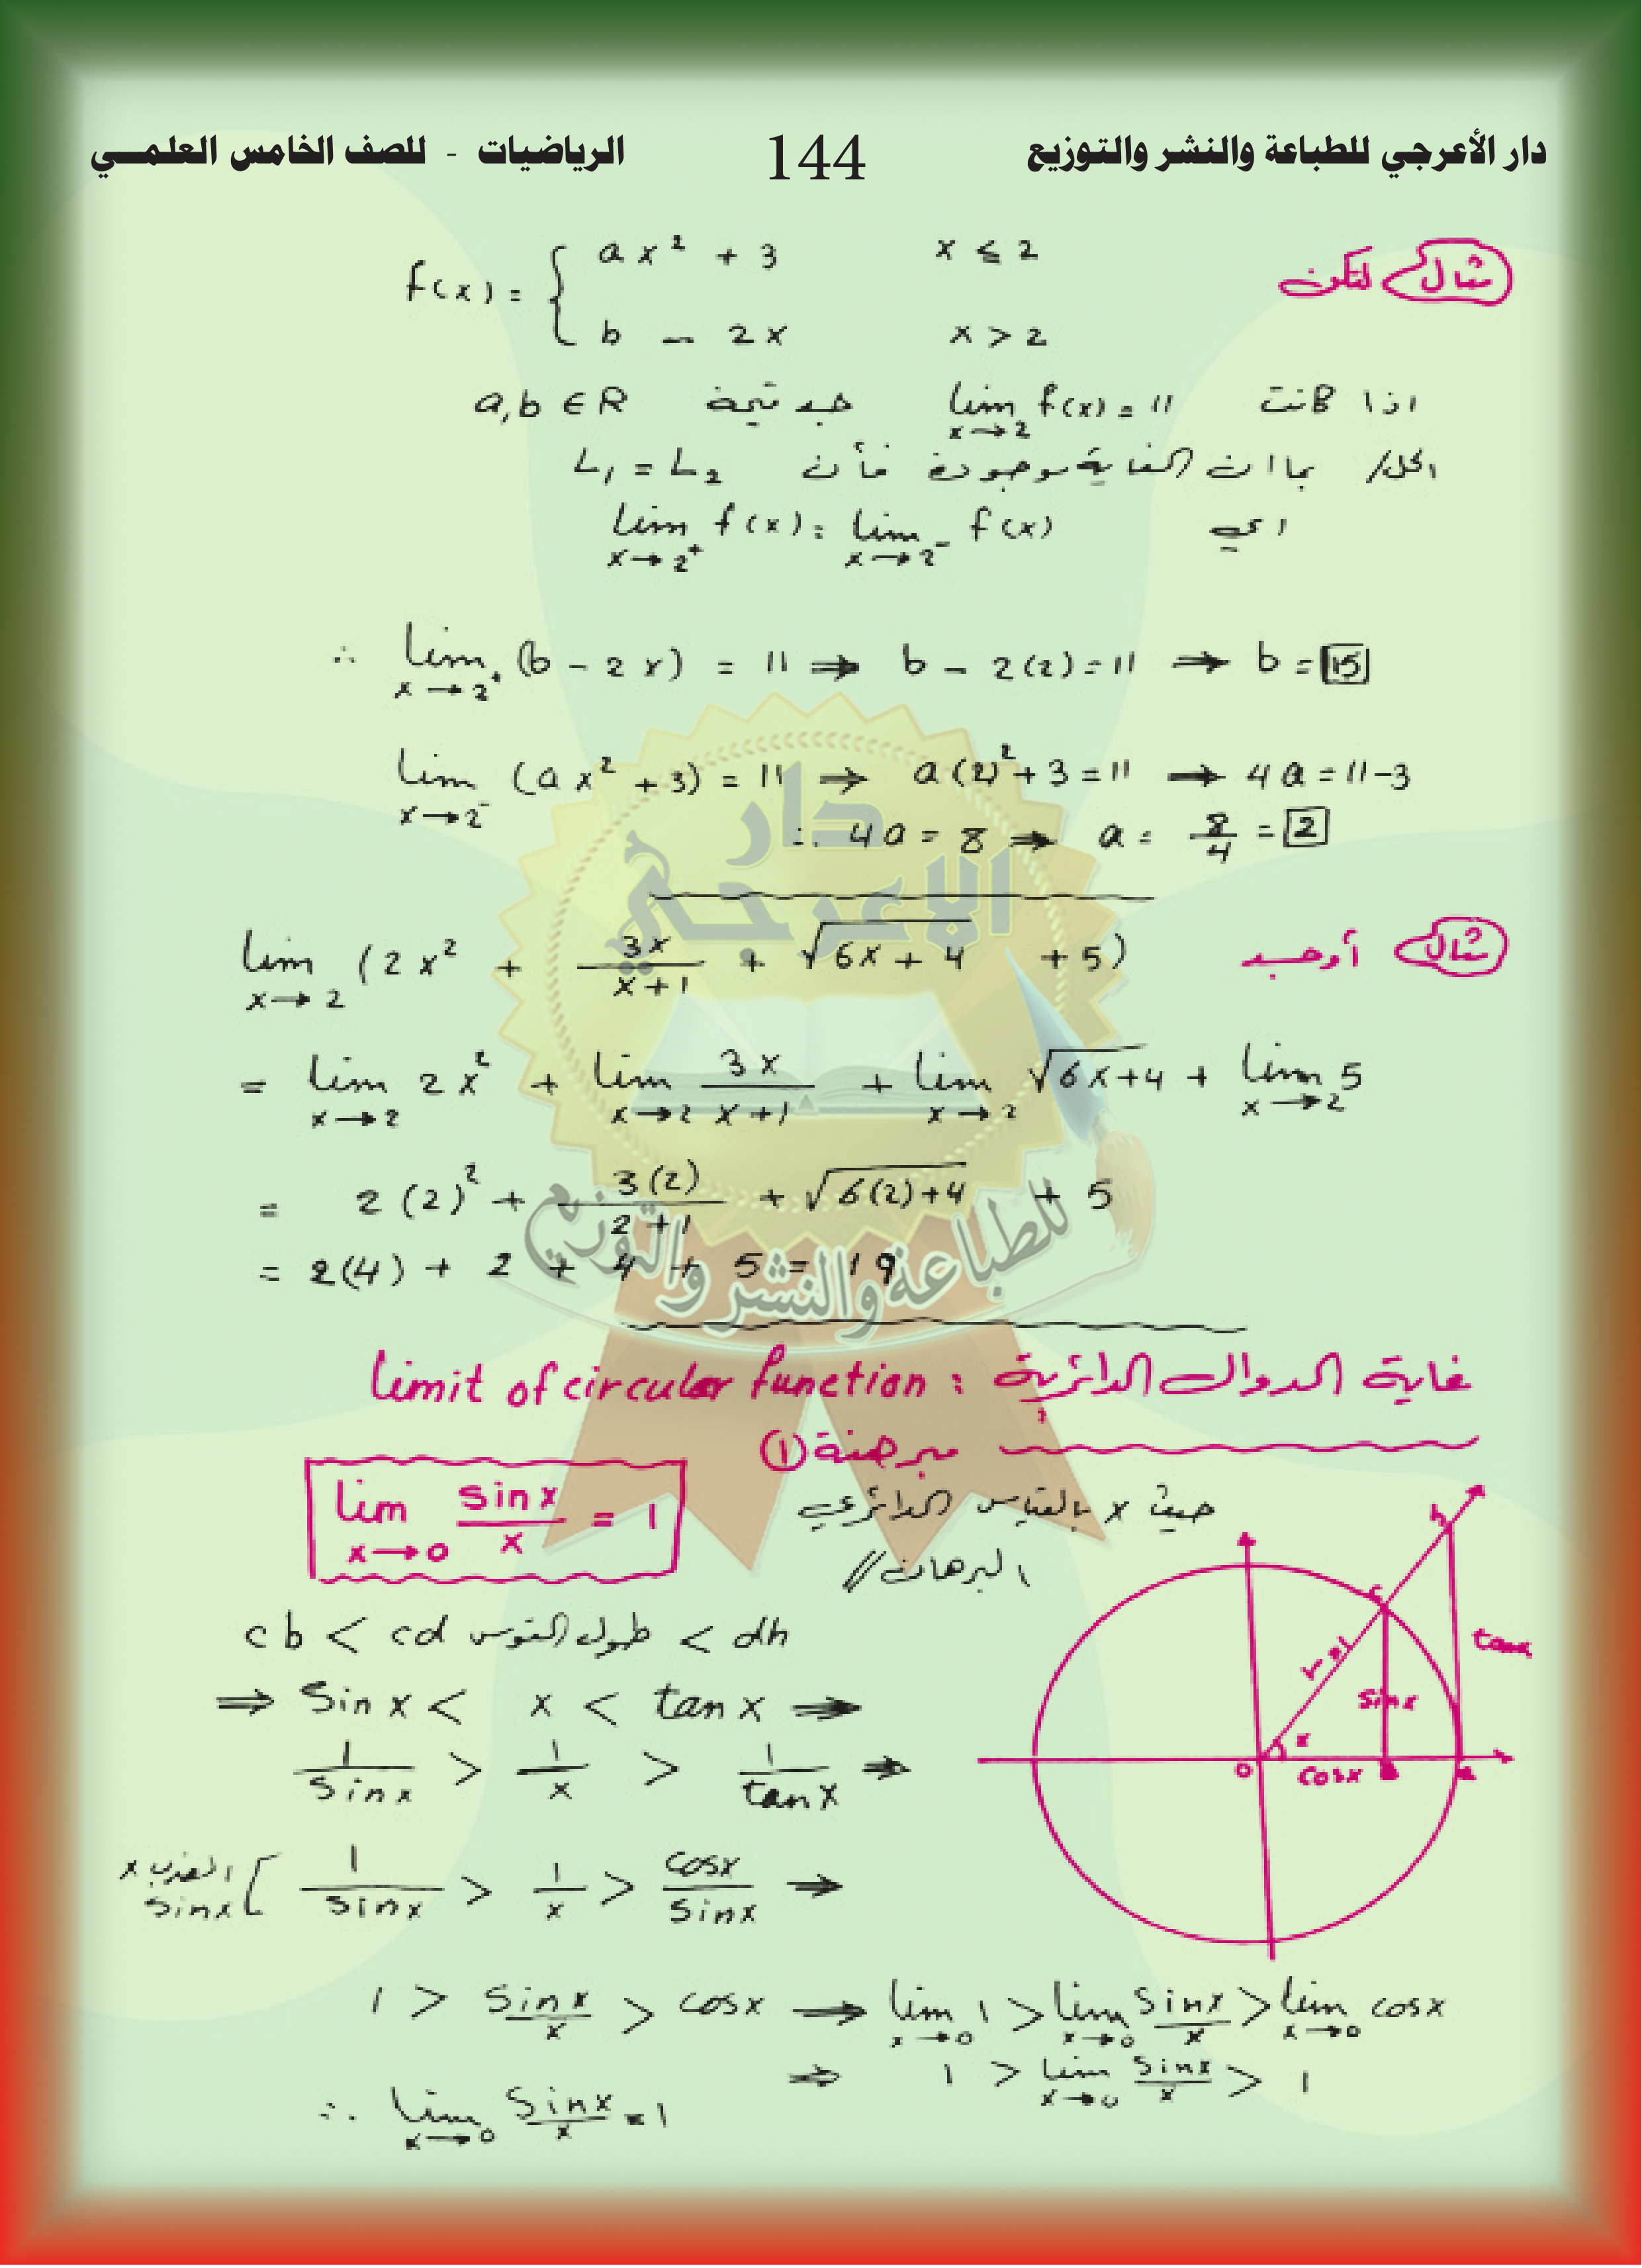 دار الأعرجي للطباعة والنشر والتوزيع 144 الرياضيات - للصف الخامس العلمـــي
مثال لتكن f(x) = { ax² + 3 x ≤ 2
b - 2x x > 2
اذا كانت lim x→2 f(x) = 11 جد قيمة a,b ∈ R
الحل/ بما ان الغاية موجودة فأن L₁ = L₂
اي lim x→2⁺ f(x) = lim x→2⁻ f(x)
∴ lim x→2⁺ (b - 2x) = 11 ⇒ b - 2(2) = 11 ⇒ b = 15
lim x→2⁻ (ax² + 3) = 11 ⇒ a(2)² + 3 = 11 ⇒ 4a = 11-3
∴ 4a = 8 ⇒ a = 8/4 = 2
مثال أوجد lim x→2 (2x² + 3x/(x+1) + √(6x+4) + 5)
= lim x→2 2x² + lim x→2 3x/(x+1) + lim x→2 √(6x+4) + lim x→2 5
= 2(2)² + 3(2)/(2+1) + √(6(2)+4) + 5
= 2(4) + 2 + 4 + 5 = 19
دار
الاعرجي
للطباعة والنشر والتوزيع
غاية الدوال الدائرية : Limit of circular function
مبرهنة ①
lim x→0 sinx/x = 1
حيث x بالقياس الدائري
البرهان //
cb < cd طول القوس < dh
⇒ sinx < x < tanx ⇒
1/sinx > 1/x > 1/tanx ⇒
الضرب x sinx [ 1/sinx > 1/x > cosx/sinx ⇒
1 > sinx/x > cosx ⇒ lim x→0 1 > lim x→0 sinx/x > lim x→0 cosx
⇒ 1 > lim x→0 sinx/x > 1
∴ lim x→0 sinx/x = 1
h
c
r=1
tanx
sinx
x
o
cosx